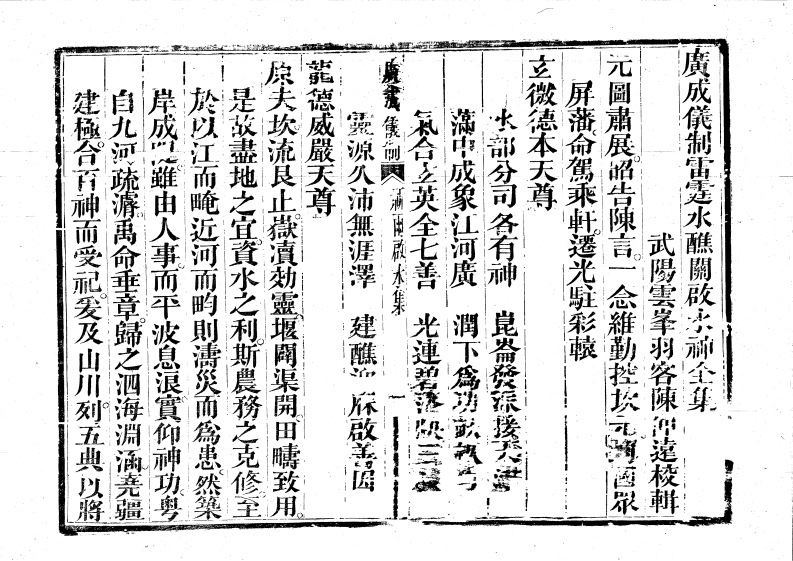 廣成儀制雷霆水醮關啟水神全集
武陽雲峯羽客陳仲遠校輯
元圖肅展詔告陳言一念維勤控坎元酒眾
屏藩命駕乘軒遷光駐彩轅
玄微德本天尊
水部分司各有神 崑崙發派接天
滿中成象江河廣 潤下爲功
氣合玄英全七善 光連碧落
靈源久沛無涯澤 建醮迎麻啟善因
廣成儀制 祈雨啟水集 一
龍德威嚴天尊
原夫坎流艮止嶽瀆効靈堰闢渠開田疇致用
是故盡地之宜資水之利斯農務之克修至
於以江而畮近河而畇則濤災而爲患然築
岸成隄雖由人事而平波息浪實仰神功粵
自九河疏濬禹命垂章歸之泗海淵涵堯疆
建極合百神而受祀爰及山川列五典以將